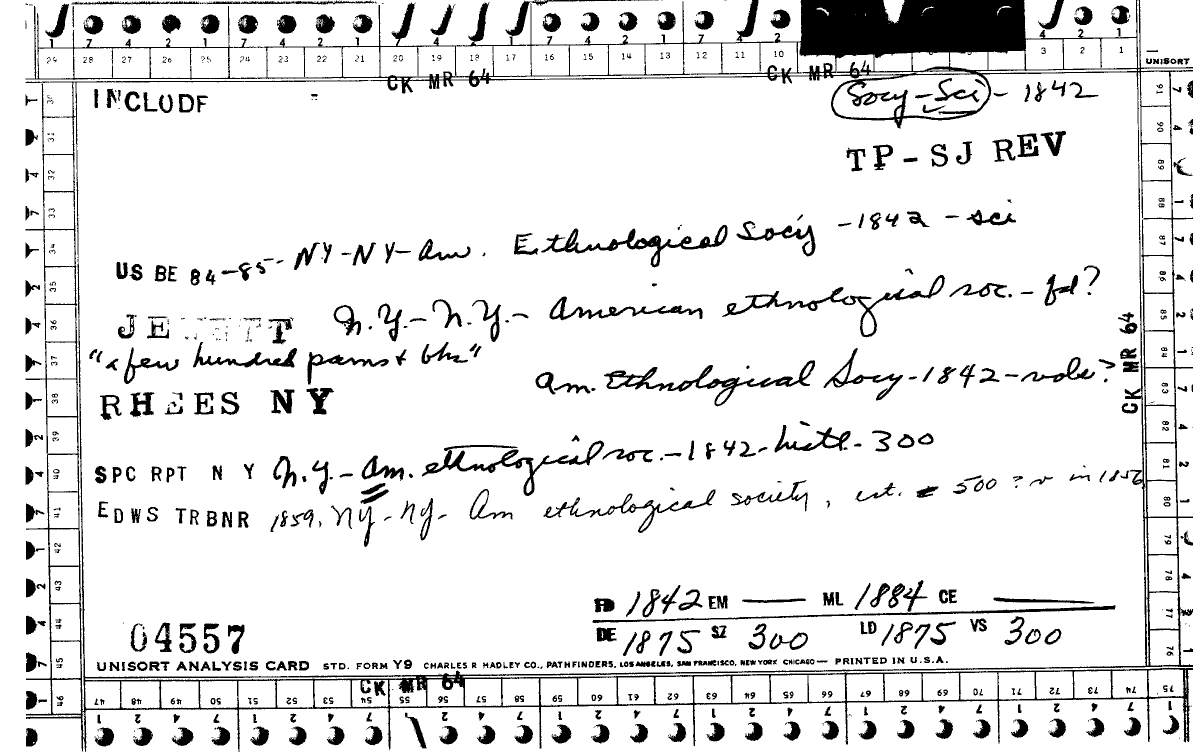 7 4 2 1 7 4 2 1 7 4 2 1 7 4 2 1 7 4 2 1
29 28 27 26 25 24 23 22 21 20 19 18 17 16 15 14 13 12 11 10 3 2 1
UNISORT
CK MR 64 CK MR 64
INCLUDE Socy-Sci - 1842
TP-SJ REV
US BE 84-85- NY-NY-Am. Ethnological Socy -1842 -sci
JEWETT N.Y.- N.Y.- American ethnological soc.- fd?
"a few hundred pams & bks"
Am. Ethnological Socy-1842-vols?
RHEES NY
CK MR 64
SPC RPT N Y N.Y.- Am. ethnological soc.-1842-histl.-300
EDWS TRBNR 1859, NY-NY- Am ethnological society, est. 500? v in 1856
FD 1842 EM — ML 1884 CE —
DE 1875 SZ 300 LD 1875 VS 300
04557
UNISORT ANALYSIS CARD STD. FORM Y9 CHARLES R HADLEY CO., PATHFINDERS, LOS ANGELES, SAN FRANCISCO, NEW YORK CHICAGO — PRINTED IN U.S.A.
CK MR 64
47 48 49 50 51 52 53 54 55 56 57 58 59 60 61 62 63 64 65 66 67 68 69 70 71 72 73 74 75